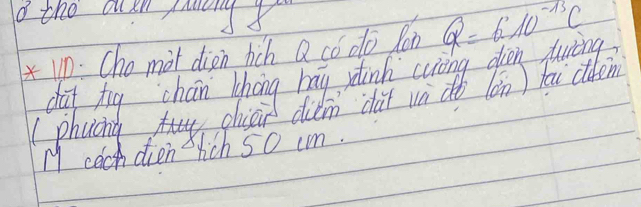 ở thổ
* VD: Cho một điện tích Q có độ lớn Q = 6.10⁻¹³ C
đặt trg chân không hãy xđịnh cường điện trường
(phương chiều điểm đặt và độ lớn) tại điểm
M cách điện tích 50 cm.